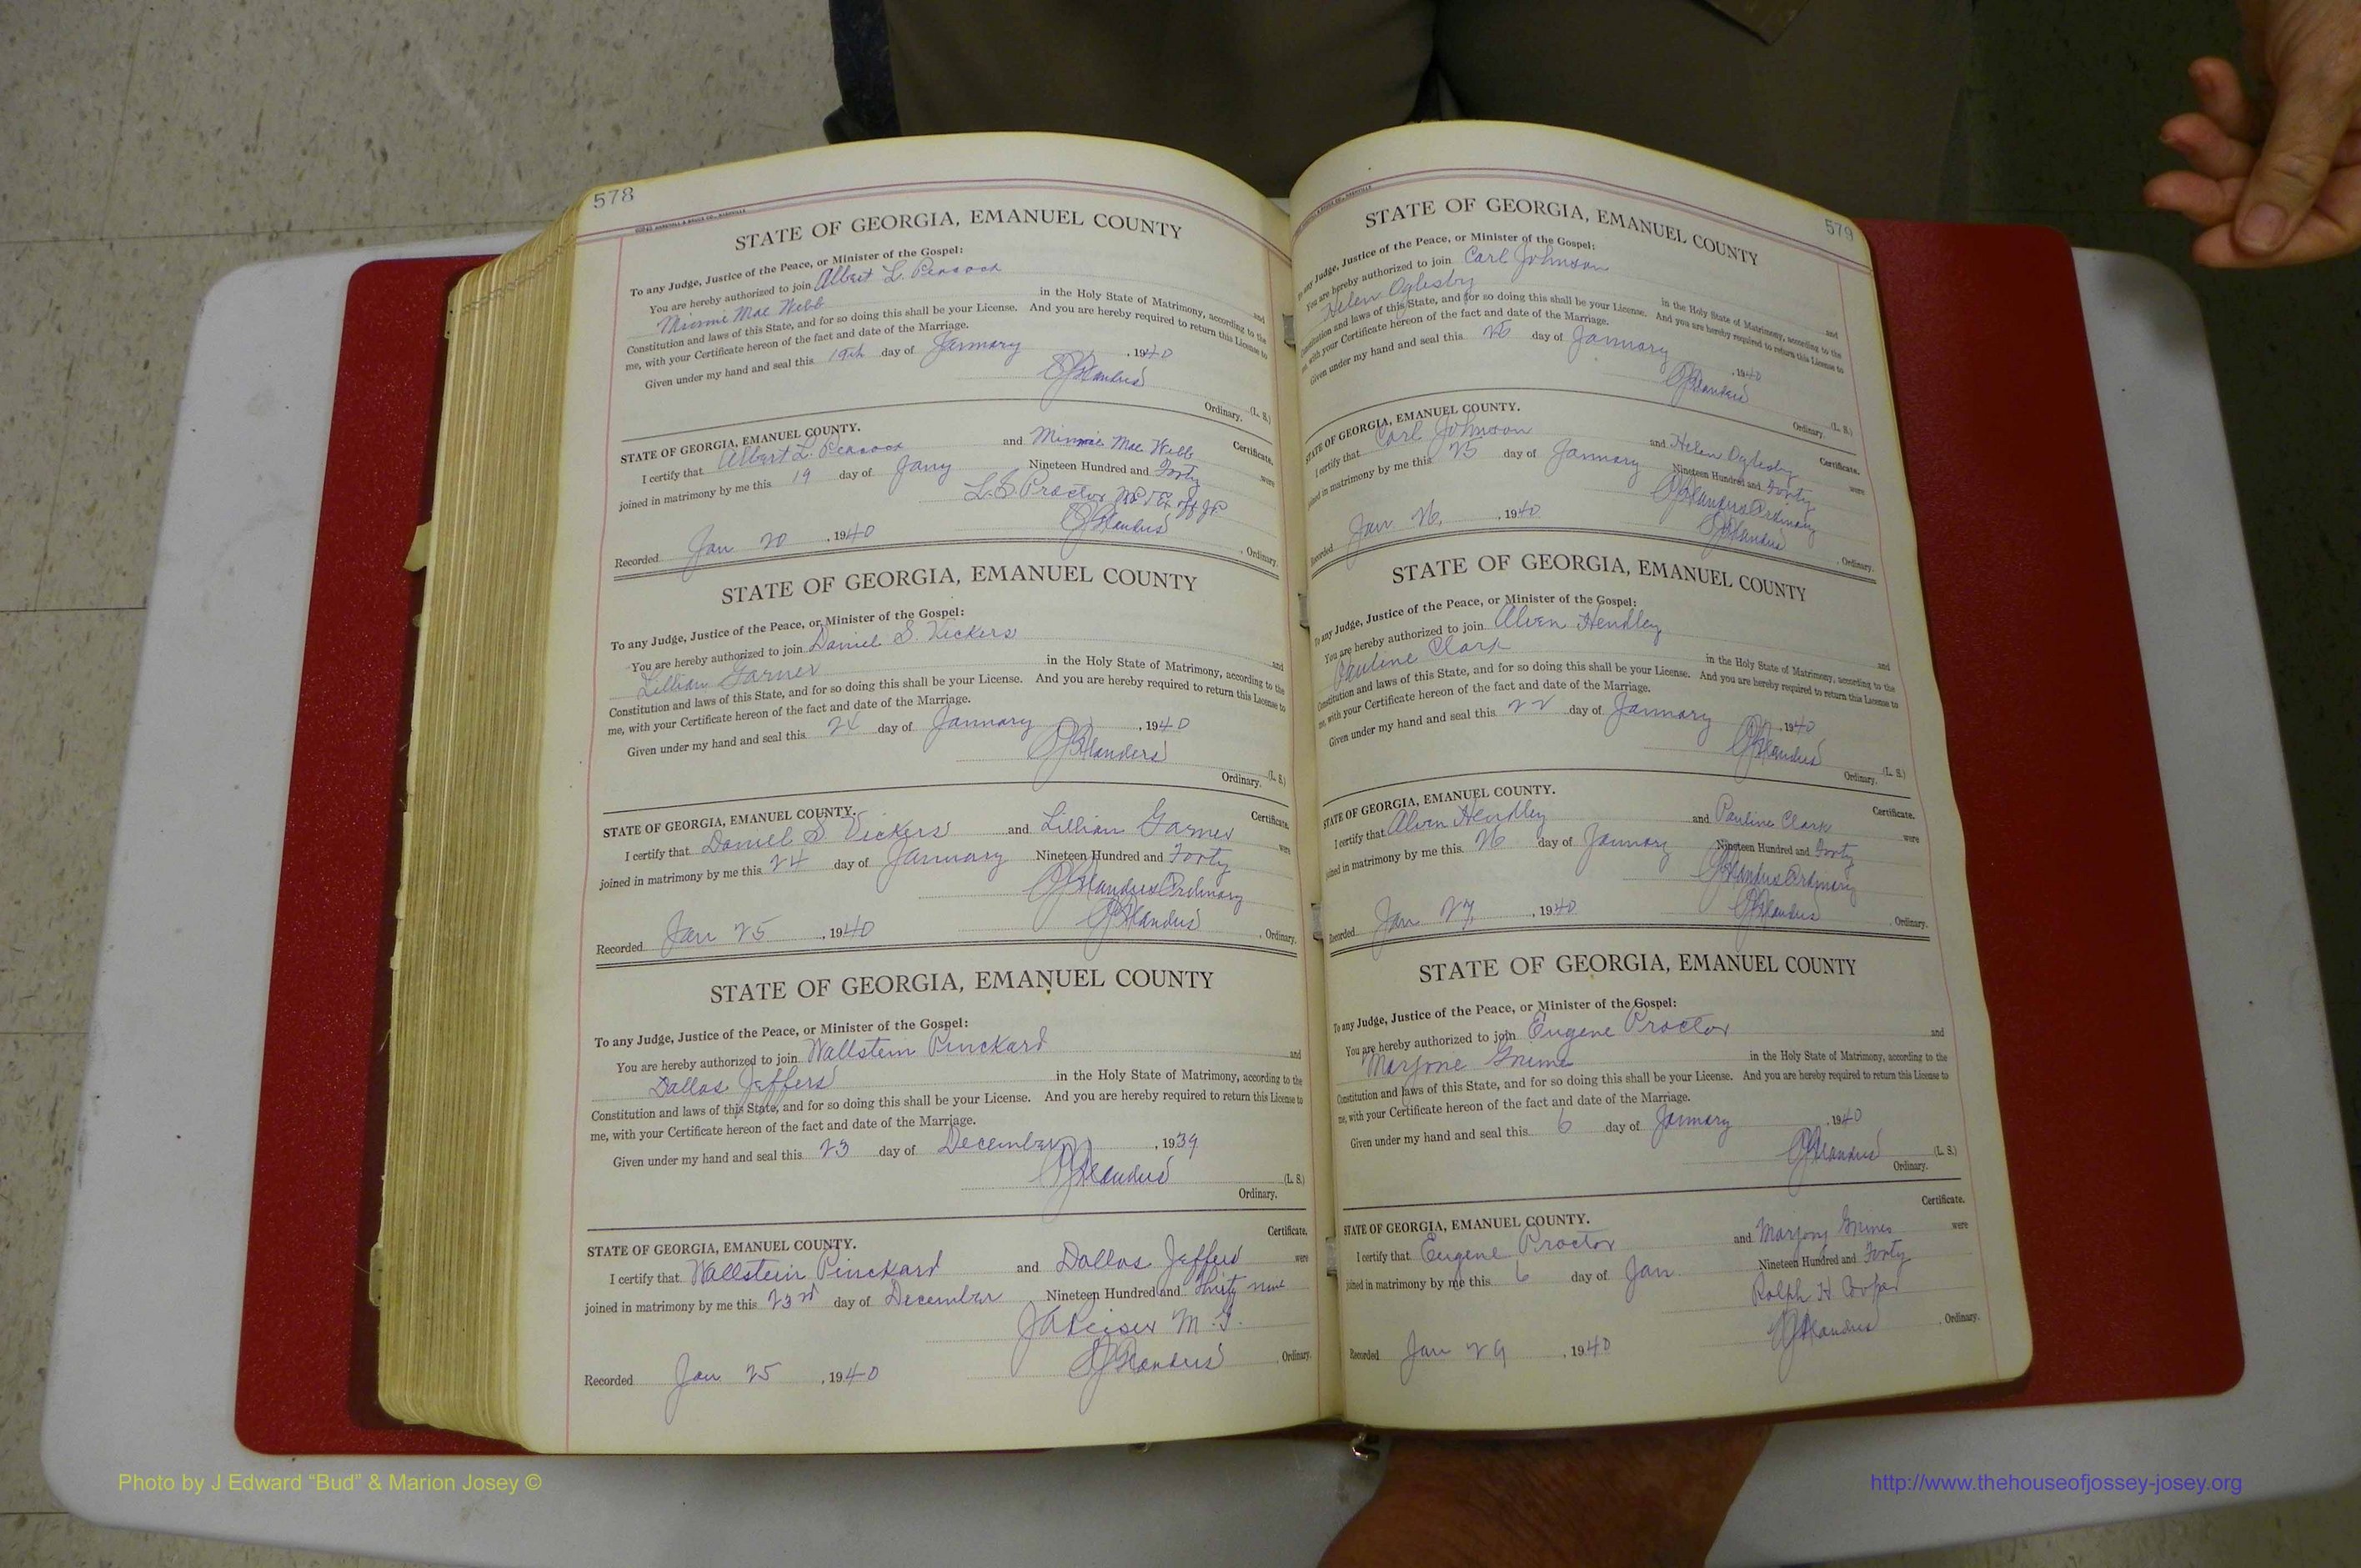 578
STATE OF GEORGIA, EMANUEL COUNTY
To any Judge, Justice of the Peace, or Minister of the Gospel:
You are hereby authorized to join Albert L. Peacock and
Minnie Mae Webb in the Holy State of Matrimony, according to the
Constitution and laws of this State, and for so doing this shall be your License. And you are hereby required to return this License to
me, with your Certificate hereon of the fact and date of the Marriage.
Given under my hand and seal this 19th day of January, 1940
(L. S.)
Ordinary.
STATE OF GEORGIA, EMANUEL COUNTY. Certificate.
I certify that Albert L. Peacock and Minnie Mae Webb were
joined in matrimony by me this 19 day of Jany Nineteen Hundred and Forty
L. S. Proctor
Recorded Jan 20, 1940 , Ordinary.
STATE OF GEORGIA, EMANUEL COUNTY
To any Judge, Justice of the Peace, or Minister of the Gospel:
You are hereby authorized to join Daniel S. Vickers and
Lillian Garner in the Holy State of Matrimony, according to the
Constitution and laws of this State, and for so doing this shall be your License. And you are hereby required to return this License to
me, with your Certificate hereon of the fact and date of the Marriage.
Given under my hand and seal this 24 day of January, 1940
Flanders (L. S.)
Ordinary.
STATE OF GEORGIA, EMANUEL COUNTY. Certificate.
I certify that Daniel S. Vickers and Lillian Garner were
joined in matrimony by me this 24 day of January Nineteen Hundred and Forty
Flanders Ordinary
Recorded Jan 25, 1940 Flanders, Ordinary.
STATE OF GEORGIA, EMANUEL COUNTY
To any Judge, Justice of the Peace, or Minister of the Gospel:
You are hereby authorized to join Wallstein Pinckard and
Dallas Jeffers in the Holy State of Matrimony, according to the
Constitution and laws of this State, and for so doing this shall be your License. And you are hereby required to return this License to
me, with your Certificate hereon of the fact and date of the Marriage.
Given under my hand and seal this 23 day of December, 1939
Flanders (L. S.)
Ordinary.
Certificate.
STATE OF GEORGIA, EMANUEL COUNTY.
I certify that Wallstein Pinckard and Dallas Jeffers were
joined in matrimony by me this 23rd day of December Nineteen Hundred and Thirty nine
M. G.
Recorded Jan 25, 1940 Flanders, Ordinary.
579
STATE OF GEORGIA, EMANUEL COUNTY
To any Judge, Justice of the Peace, or Minister of the Gospel:
You are hereby authorized to join Carl Johnson and
Helen Oglesby in the Holy State of Matrimony, according to the
Constitution and laws of this State, and for so doing this shall be your License. And you are hereby required to return this License to
me, with your Certificate hereon of the fact and date of the Marriage.
Given under my hand and seal this day of January, 1940
Flanders (L. S.)
Ordinary.
STATE OF GEORGIA, EMANUEL COUNTY. Certificate.
I certify that Carl Johnson and Helen Oglesby were
joined in matrimony by me this 25 day of January Nineteen Hundred and Forty
Flanders Ordinary
Recorded Jan 26, 1940 Flanders, Ordinary.
STATE OF GEORGIA, EMANUEL COUNTY
To any Judge, Justice of the Peace, or Minister of the Gospel:
You are hereby authorized to join Alven Hendley and
Pauline Clark in the Holy State of Matrimony, according to the
Constitution and laws of this State, and for so doing this shall be your License. And you are hereby required to return this License to
me, with your Certificate hereon of the fact and date of the Marriage.
Given under my hand and seal this 22 day of January, 1940
Flanders (L. S.)
Ordinary.
STATE OF GEORGIA, EMANUEL COUNTY. Certificate.
I certify that Alven Hendley and Pauline Clark were
joined in matrimony by me this 26 day of January Nineteen Hundred and Forty
Flanders Ordinary
Recorded Jan 27, 1940 Flanders, Ordinary.
STATE OF GEORGIA, EMANUEL COUNTY
To any Judge, Justice of the Peace, or Minister of the Gospel:
You are hereby authorized to join Eugene Proctor and
Marjorie Grimes in the Holy State of Matrimony, according to the
Constitution and laws of this State, and for so doing this shall be your License. And you are hereby required to return this License to
me, with your Certificate hereon of the fact and date of the Marriage.
Given under my hand and seal this 6 day of January, 1940
Flanders (L. S.)
Ordinary.
Certificate.
STATE OF GEORGIA, EMANUEL COUNTY.
I certify that Eugene Proctor and Marjory Grimes were
joined in matrimony by me this 6 day of Jan Nineteen Hundred and Forty
Ralph H
Recorded Jan 29, 1940 Flanders, Ordinary.
Photo by J Edward “Bud” & Marion Josey ©
http://www.thehouseofjossey-josey.org